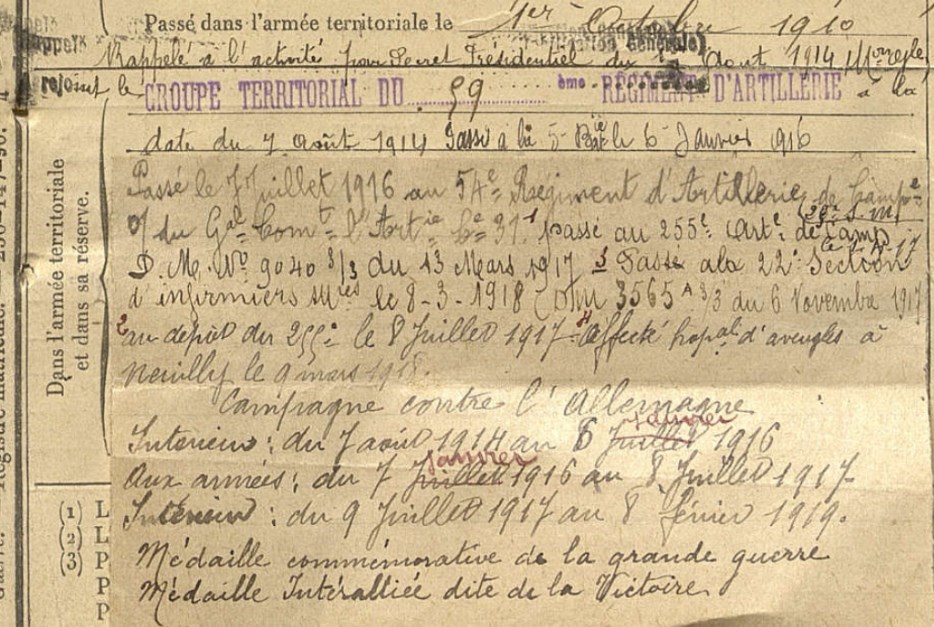 Passé dans l'armée territoriale le 1er Octobre 1910
Rappelé à l'activité par Décret Présidentiel du 1er Août 1914
(Mobilisation Générale)
rejoint le GROUPE TERRITORIAL DU 59 ème RÉGIMENT D'ARTILLERIE à la
date du 7 Août 1914 Passé à la 5e Bie le 6 Janvier 1916
Passé le 7 Juillet 1916 au 54e Régiment d'Artillerie de Campe
O/ du Gal Comt l'Artie Ce 37 1 passé au 255e Arte de Camp
D.M. No 9040 3/3 du 13 Mars 1917 3 Passé à la 22e Section
d'infirmiers mres le 8-3-1918 (DM 3565 A 3/3 du 6 Novembre 1917
2 au dépôt du 255e le 8 Juillet 1917 4 Affecté hopal d'aveugles à
Neuilly le 9 mars 1918.
Campagne contre l'Allemagne
Intérieur : du 7 août 1914 au 6 Juillet janvier 1916
Aux armées : du 7 Juillet janvier 1916 au 8 Juillet 1917-
Intérieur : du 9 Juillet 1917 au 8 février 1919.
Médaille commémorative de la grande guerre
Médaille Interalliée dite de la Victoire
Dans l'armée territoriale
et dans sa réserve.
(1) L
(2) L'
(3) P
P
P